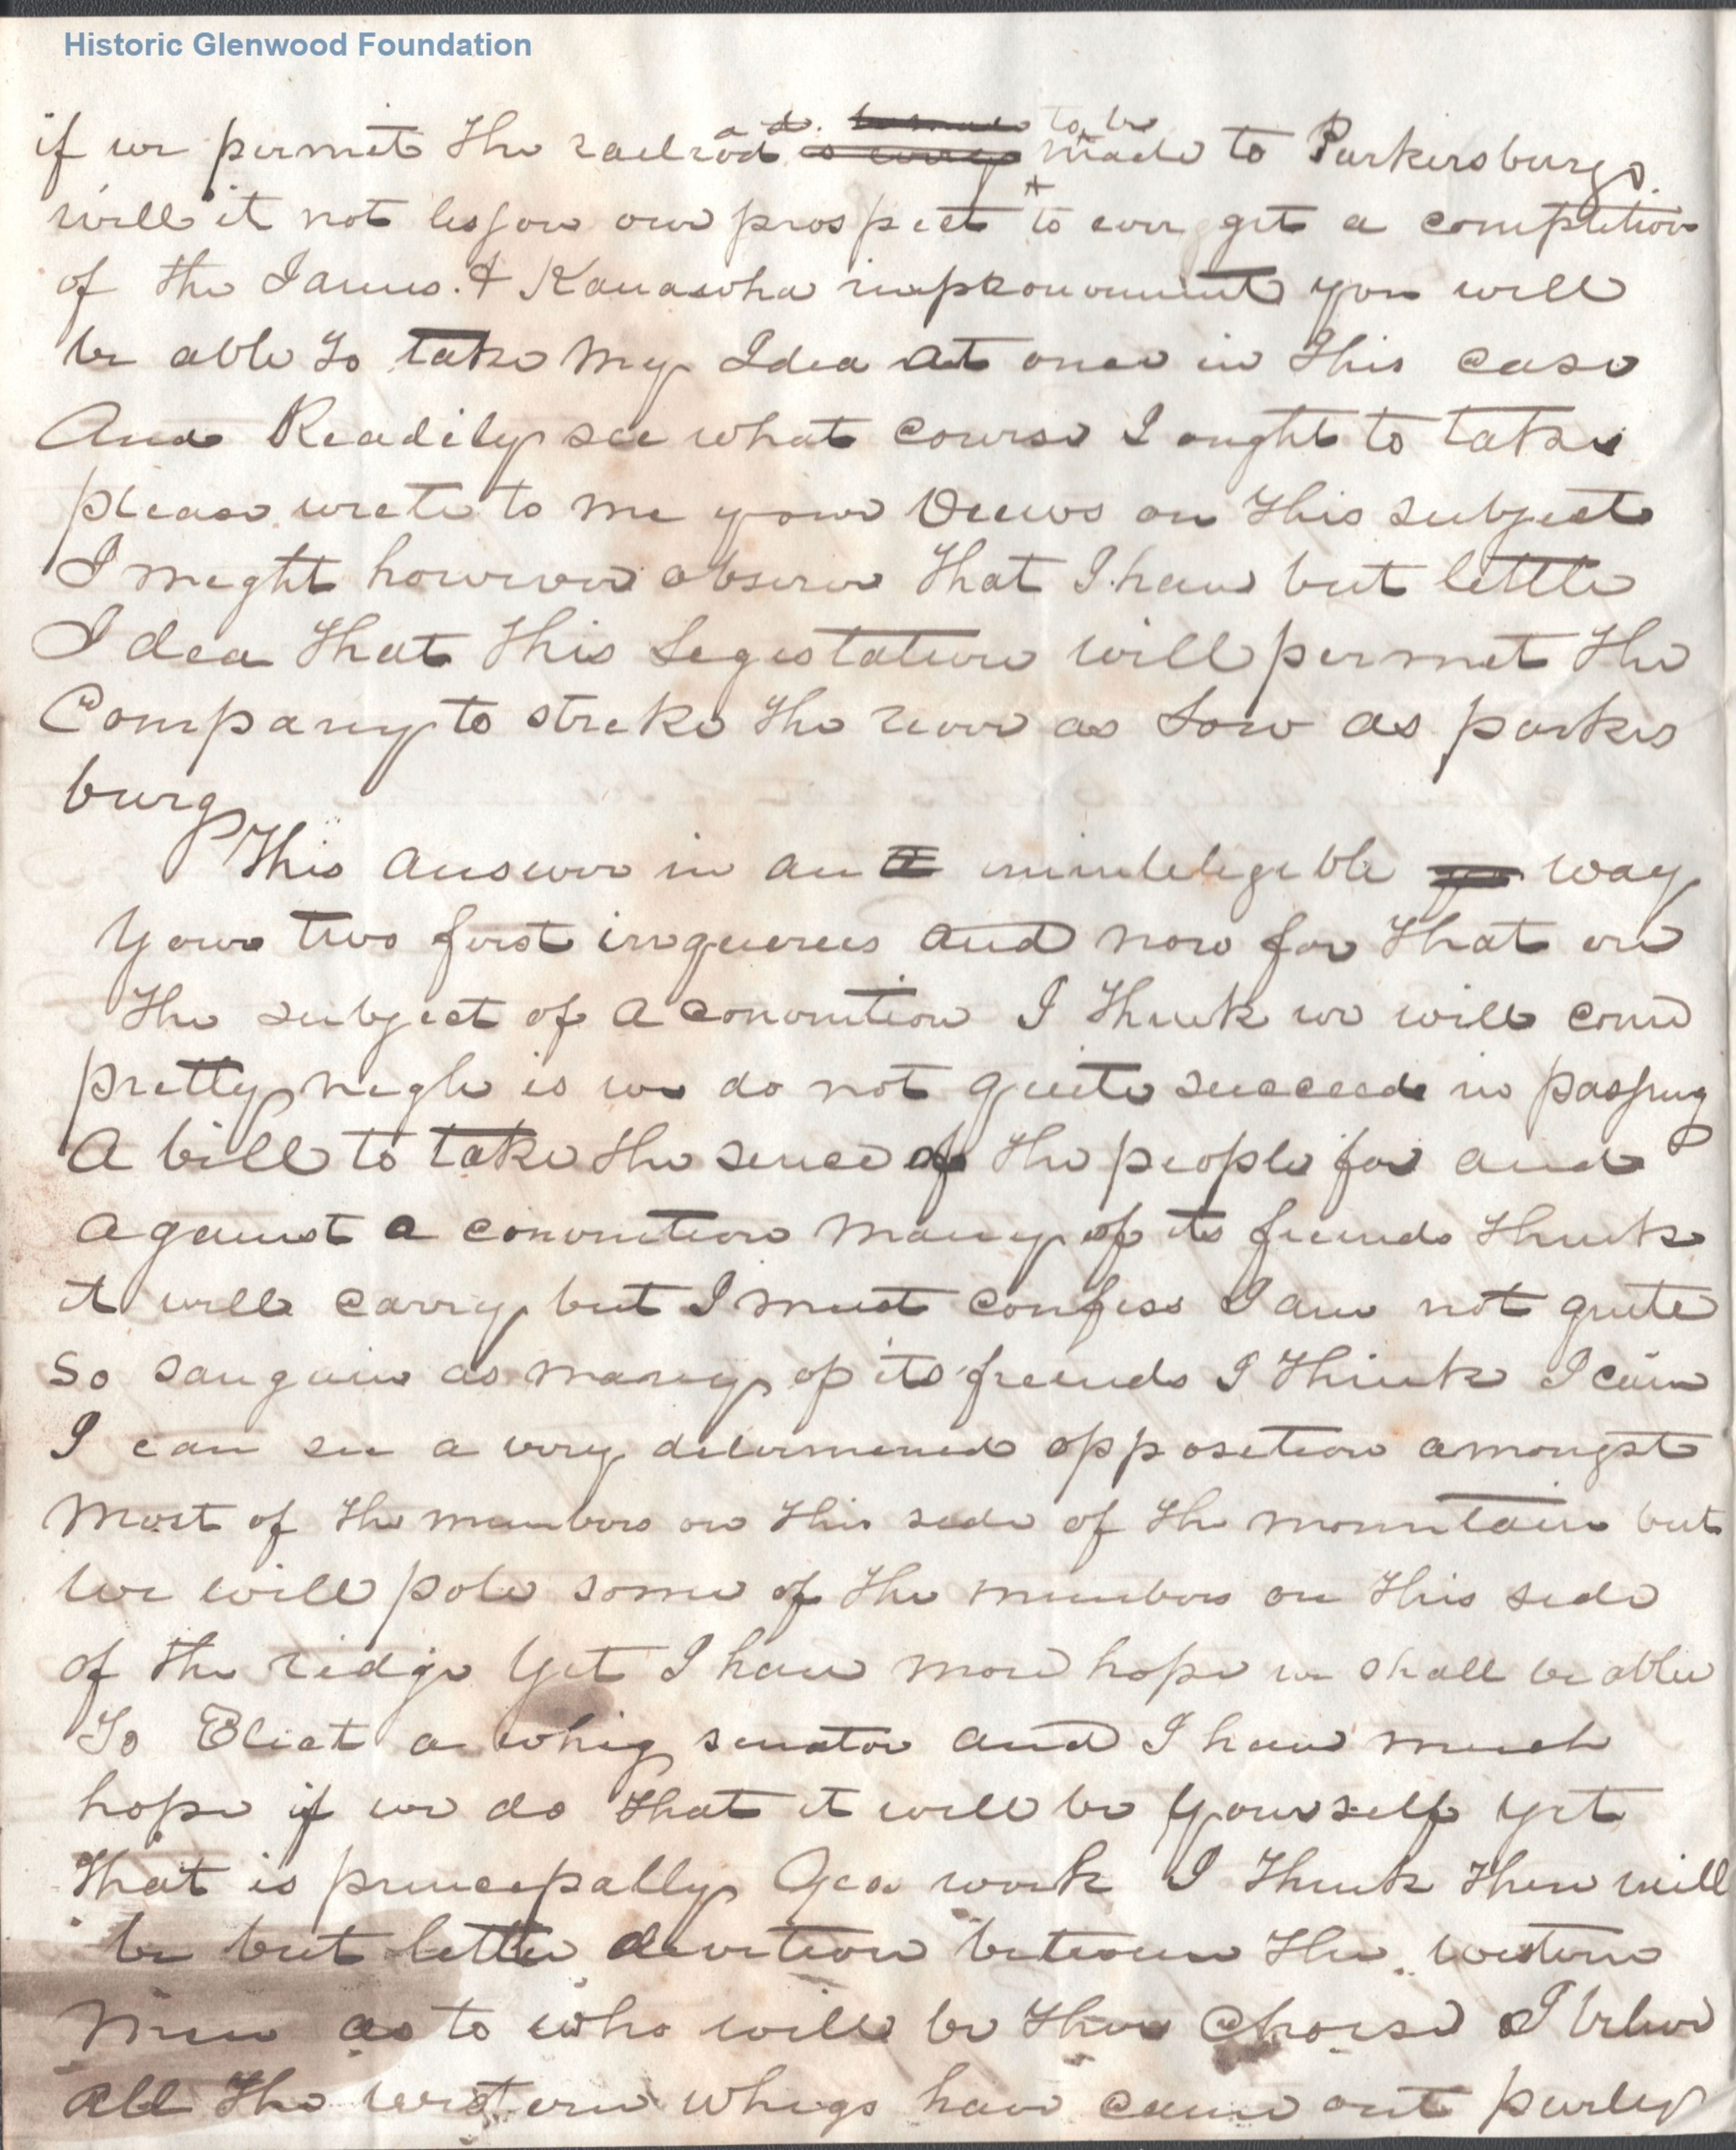 Historic Glenwood Foundation
if we permit the railroad to be made to Parkersburg
will it not lessen our prospect to ever get a completion
of the James & Kanawha improvement you will
be able to take my Idea at once in this case
And Readily see what course I ought to take
please write to me your Views on this subject
I might however observe that I have but little
Idea that this Legislature will permit the
Company to strike the river as Low as parkers
burg
This answer in an unintelegible way
Your two first inqueries and now for that on
the subject of a convention I think we will come
pretty nigh is we do not quite succeed in passing
A bill to take the sence of the people for and
against a convention many of its friends think
it will carry but I must confess I am not quite
So sanguin as many of its friends I think I can
I can see a very determined opposition amongst
Most of the members on this side of the mountain but
we will pole some of the members on this side
of the ridge Yet I have more hope we shall be able
To Elect a whig senator and I have much
hope if we do that it will be Yourself yet
that is principally work I think there will
be but little devition between the western
Men as to who will be their Choise I beleve
all the western whigs have came out purley